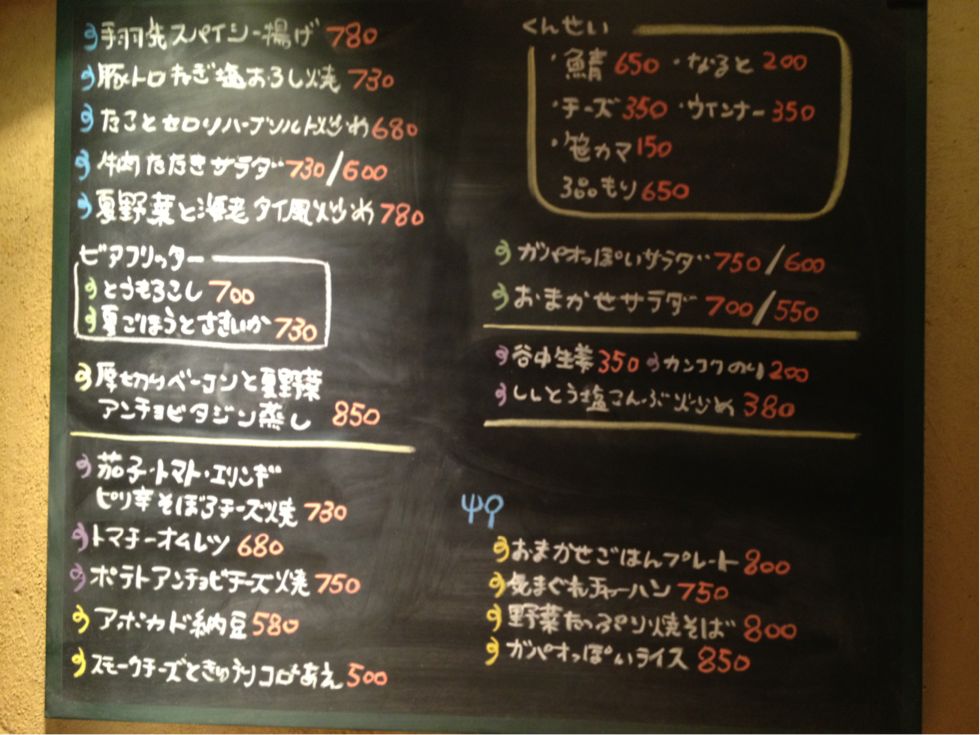 手羽先スパイシー揚げ 780
豚トロねぎ塩おろし焼 730
たことセロリハーブソルト炒め 680
牛肉たたきサラダ 730/600
夏野菜と海老タイ風炒め 780
ビアフリッター
とうもろこし 700
夏ごぼうとさきいか 730
厚切りベーコンと夏野菜
アンチョビタジン蒸し 850
茄子・トマト・エリンギ
ピリ辛そぼろチーズ焼 730
トマチーオムレツ 680
ポテトアンチョビチーズ焼 750
アボカド納豆 580
スモークチーズときゅうり コロコロあえ 500
くんせい
・鯖 650 ・なると 200
・チーズ 350 ・ウインナー 350
・笹カマ 150
3品もり 650
ガパオっぽいサラダ 750/600
おまかせサラダ 700/550
谷中生姜 350 カンコクのり 200
ししとう塩こんぶ炒め 380
おまかせごはんプレート 800
気まぐれチャーハン 750
野菜たっぷり焼そば 800
ガパオっぽいライス 850